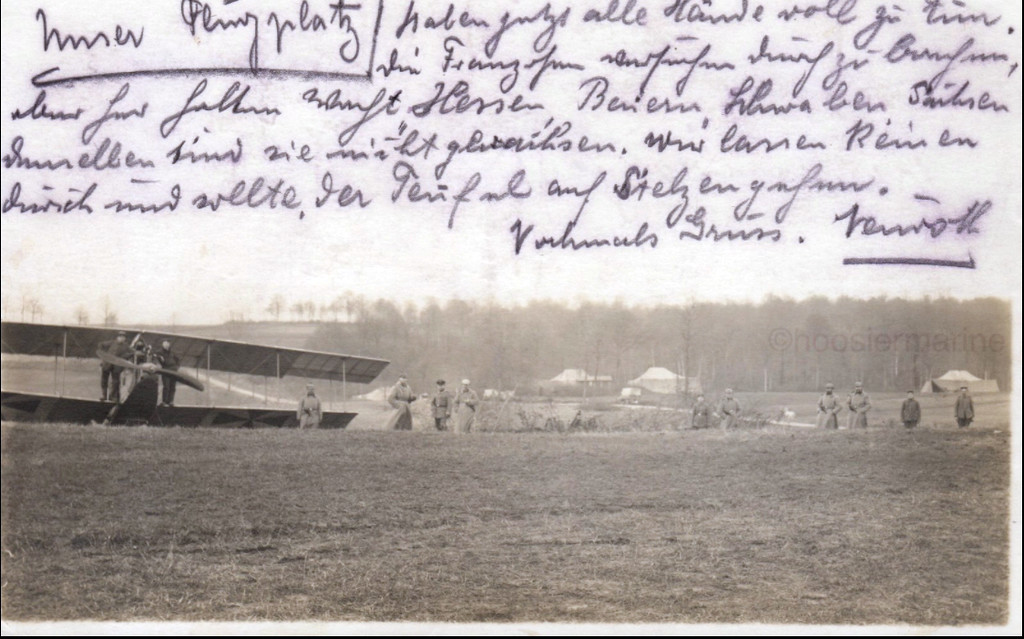 Unser Flugplatz
haben jetzt alle Hände voll zu tun.
die Franzosen versuchen durch zu brechen,
aber hier halten Wacht Hessen, Beiern, Schwaben Sachsen
denselben sind sie nicht gewachsen. Wir lassen keinen
durch und sollte, der Teufel auf Stelzen gehen.
Nochmals Gruss.
©hoosiermarine